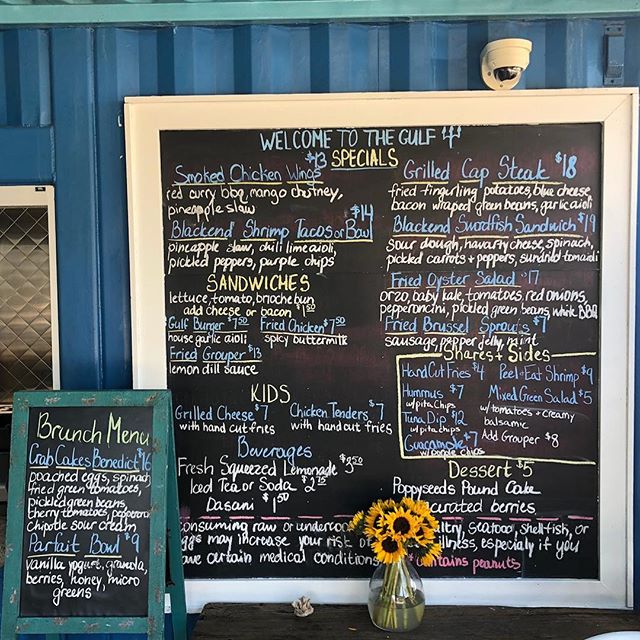 WELCOME TO THE GULF
SPECIALS
Smoked Chicken Wings $13
red curry bbq, mango chutney,
pineapple slaw
Blackend Shrimp Tacos or Bowl $14
pineapple slaw, chili lime aioli,
pickled peppers, purple chips
SANDWICHES
lettuce, tomato, brioche bun
add cheese or bacon $1.50
Gulf Burger $7.50 Fried Chicken $7.50
house garlic aioli spicy buttermilk
Fried Grouper $13
lemon dill sauce
KIDS
Grilled Cheese $7 Chicken Tenders $7
with hand cut fries with hand cut fries
Beverages
Fresh Squeezed Lemonade $3.50
Iced Tea or Soda $2.75
Dasani $1.50
Grilled Cap Steak $18
fried fingurling potatoes, blue cheese
bacon wrapped green beans, garlic aioli
Blackend Swordfish Sandwich $19
sour dough, havarty cheese, spinach,
pickled carrots + peppers,
Fried Oyster Salad $17
orzo, baby kale, tomatoes, red onions,
pepperoncini, pickled green beans, white BBQ
Fried Brussel Sprouts $7
sausage, pepper jelly, mint
Shares + Sides
Hand Cut Fries $4 Peel + Eat Shrimp $9
Hummus $7 Mixed Green Salad $5
w/pita chips w/tomatoes + creamy
Tuna Dip $12 balsamic
w/pita chips Add Grouper $8
Guacamole $7
w/purple chips
Dessert $5
Poppyseeds Pound Cake
berries
consuming raw or
eggs may increase your risk of illness, especialy if you
have certain medical conditions
contains peanuts
seafood, shellfish, or
Brunch Menu
Crab Cakes Benedict $16
poached eggs, spinach
fried green tomatoes,
pickled green beans,
cherry tomatoes,
chipotle sour cream
Parfait Bowl $9
vanilla yogurt, granola,
berries, honey, micro
greens